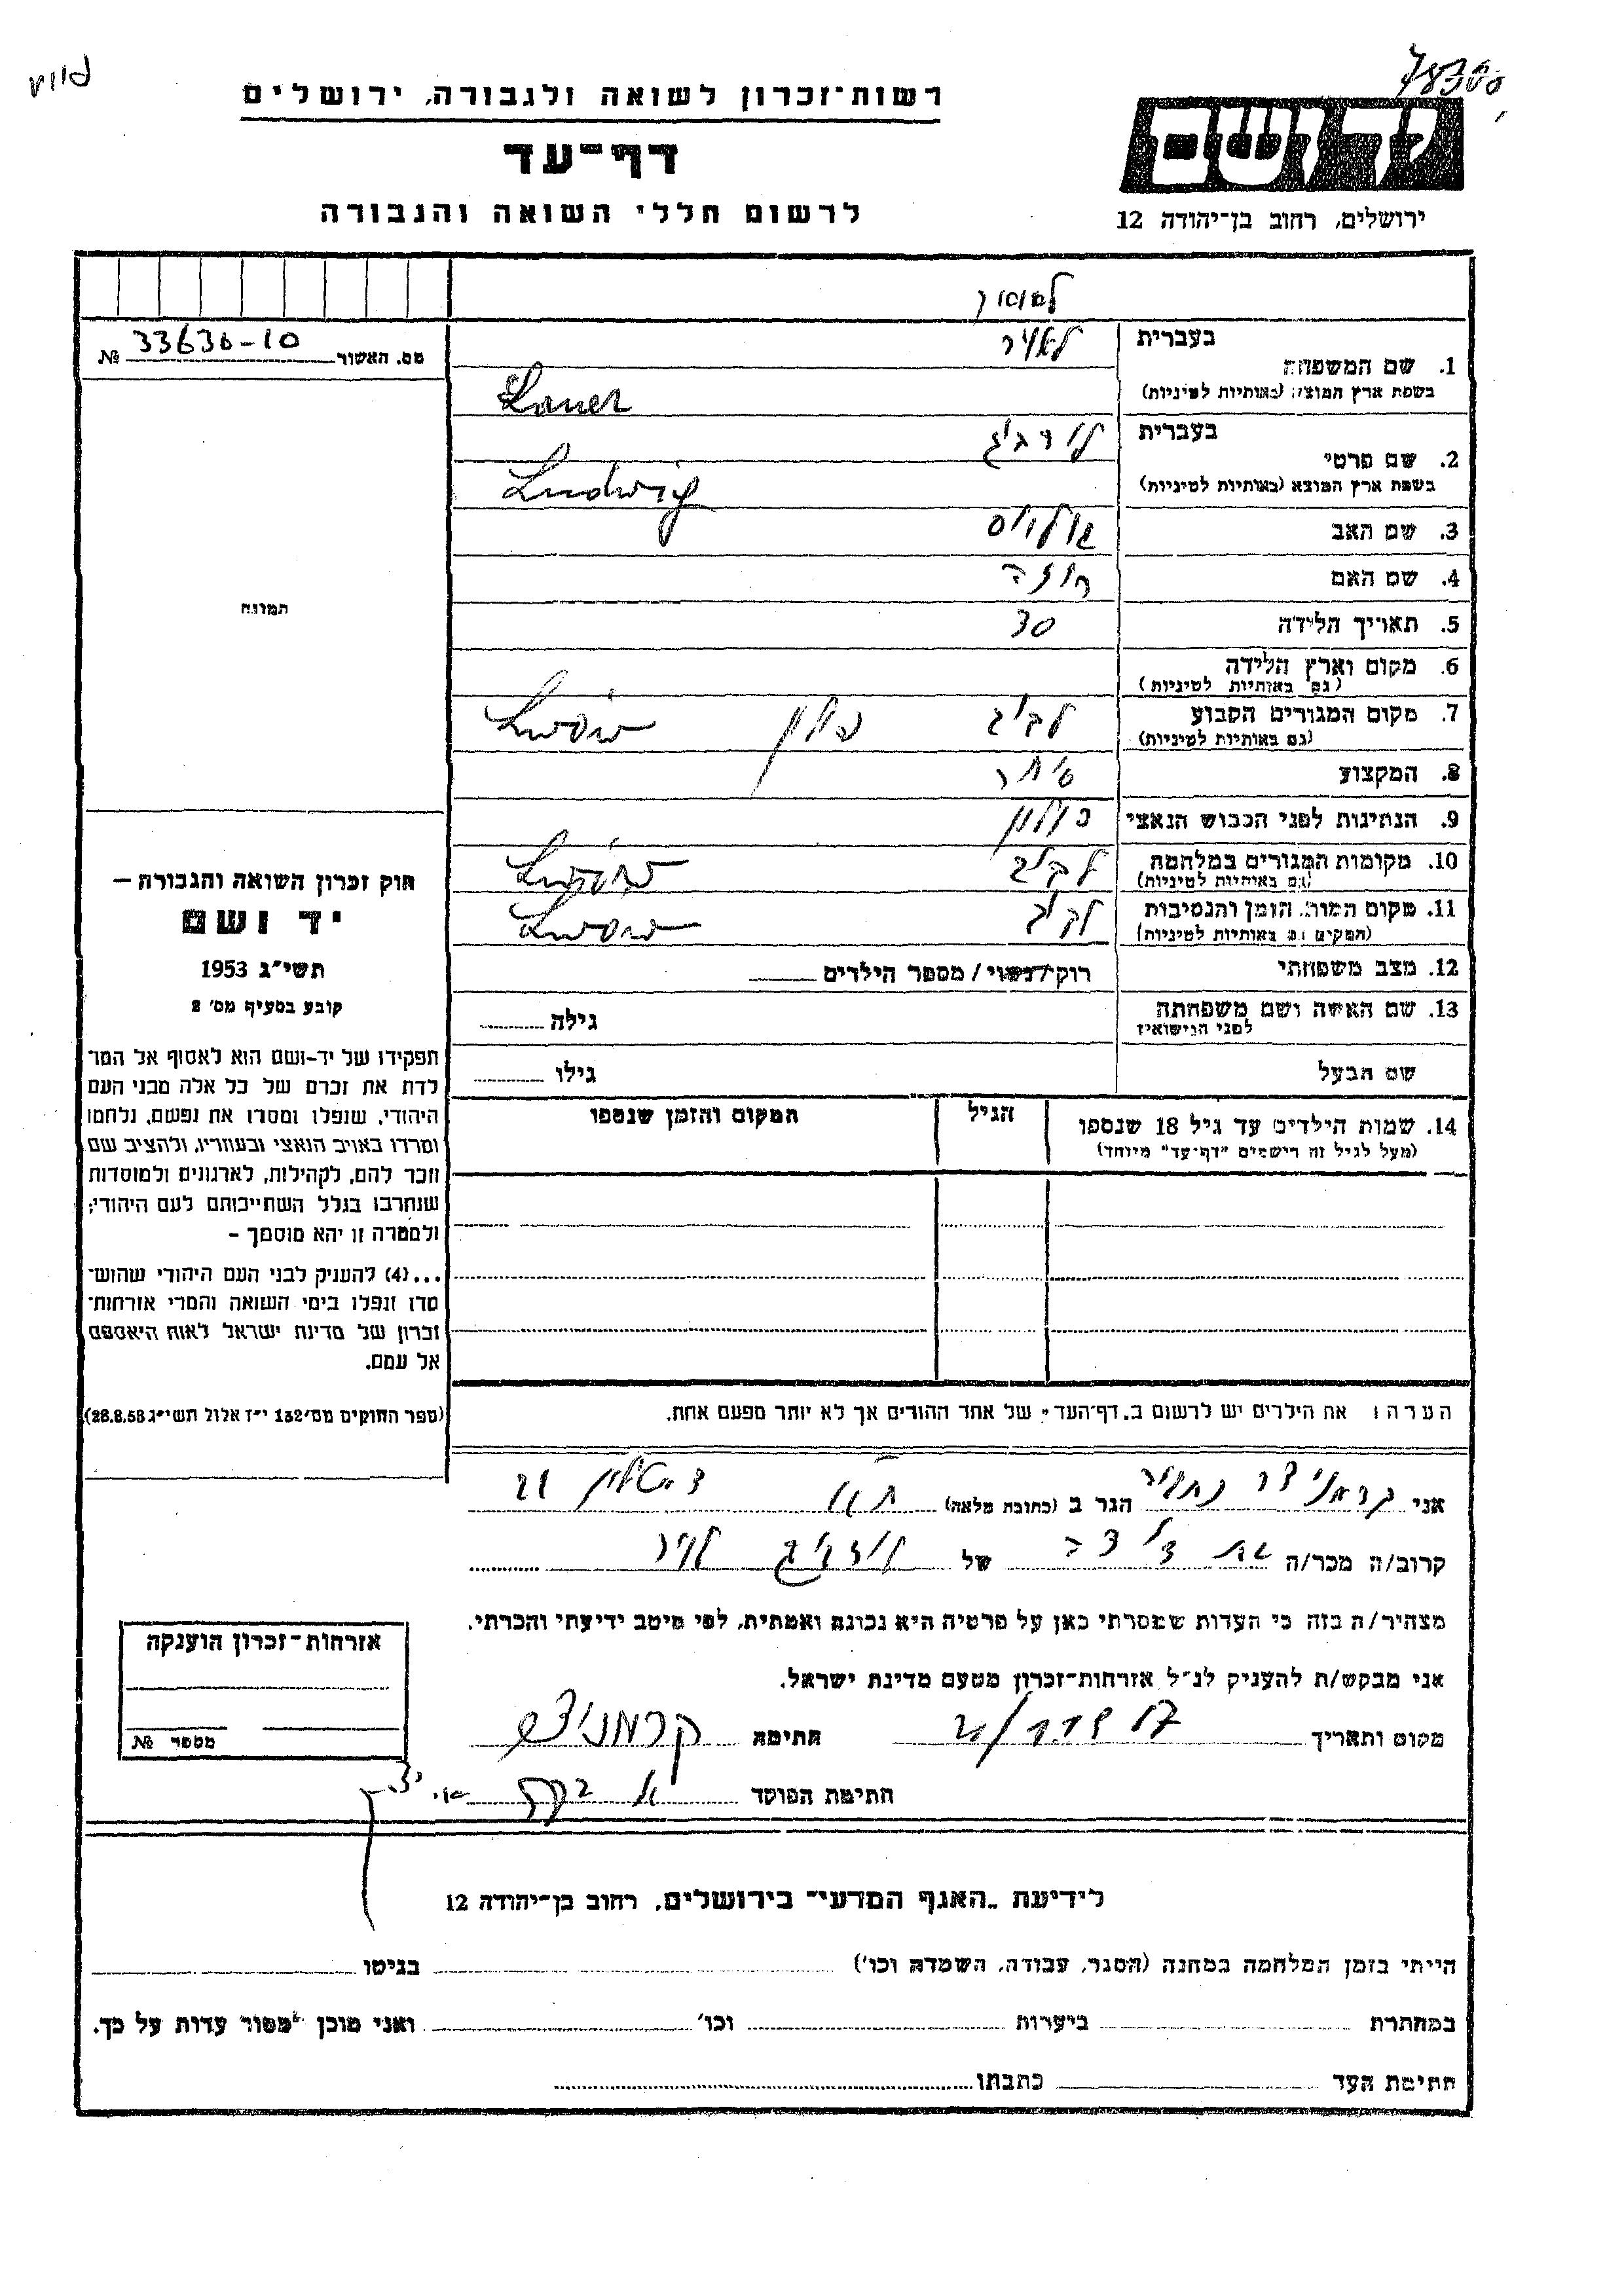 רשות־זכרון לשואה ולגבורה, ירושלים
דף־עד
לרשום חללי השואה והגבורה
ירושלים, רחוב בן־יהודה 12
מס. האשור 33636-10 №
בעברית
1. שם המשפחה
בשפת ארץ המוצא (באותיות לטיניות) Lauer
בעברית
2. שם פרטי
בשפת ארץ המוצא (באותיות לטיניות) Ludwig
3. שם האב
4. שם האם רוזה
5. תאריך הלידה 30
6. מקום וארץ הלידה
(גם באותיות לטיניות)
7. מקום המגורים הקבוע לביב פולין Lwów
(גם באותיות לטיניות)
8. המקצוע סוחר
9. הנתינות לפני הכבוש הנאצי פולין
10. מקומות המגורים במלחמה לביב Lwów
(גם באותיות לטיניות)
11. מקום המות, הזמן והנסיבות לביב Lwów
(המקום גם באותיות לטיניות)
12. מצב משפחתי רוק/נשוי/מספר הילדים
13. שם האשה ושם משפחתה גילה
לפני הנישואין
שם הבעל גילו
14. שמות הילדים עד גיל 18 שנספו הגיל המקום והזמן שנספו
(מעל לגיל זה רישמים "דף־עד" מיוחד)
הערה: את הילדים יש לרשום ב„דף־העד" של אחד ההורים אך לא יותר מפעם אחת.
תמונה
חוק זכרון השואה והגבורה –
יד ושם
תשי"ג 1953
קובע בסעיף מס' 2
תפקידו של יד-ושם הוא לאסוף אל המו־
לדת את זכרם של כל אלה מבני העם
היהודי, שנפלו ומסרו את נפשם, נלחמו
ומרדו באויב הנאצי ובעוזריו, ולהציב שם
וזכר להם, לקהילות, לארגונים ולמוסדות
שנחרבו בגלל השתייכותם לעם היהודי;
ולמטרה זו יהא מוסמך –
...(4) להעניק לבני העם היהודי שהוש־
מדו ונפלו בימי השואה והמרי אזרחות־
זכרון של מדינת ישראל לאות היאספם
אל עמם.
(ספר החוקים מס' 132 י"ז אלול תשי"ג 28.8.53)
אני הגר ב (כתובת מלאה)
קרוב/ה מכר/ה בת דודה של לודויג
מצהיר/ה בזה כי העדות שמסרתי כאן על פרטיה היא נכונה ואמתית, לפי מיטב ידיעתי והכרתי.
אני מבקש/ת להעניק לנ"ל אזרחות־זכרון מטעם מדינת ישראל.
מקום ותאריך חתימה
חתימת הפוקד
אזרחות־זכרון הוענקה
מספר №
לידיעת „האגף המדעי" בירושלים, רחוב בן־יהודה 12
הייתי בזמן המלחמה במחנה (הסגר, עבודה, השמדה וכו') בגיטו
במחתרת ביערות וכו' ואני מוכן למסור עדות על כך.
חתימת העד כתבתו